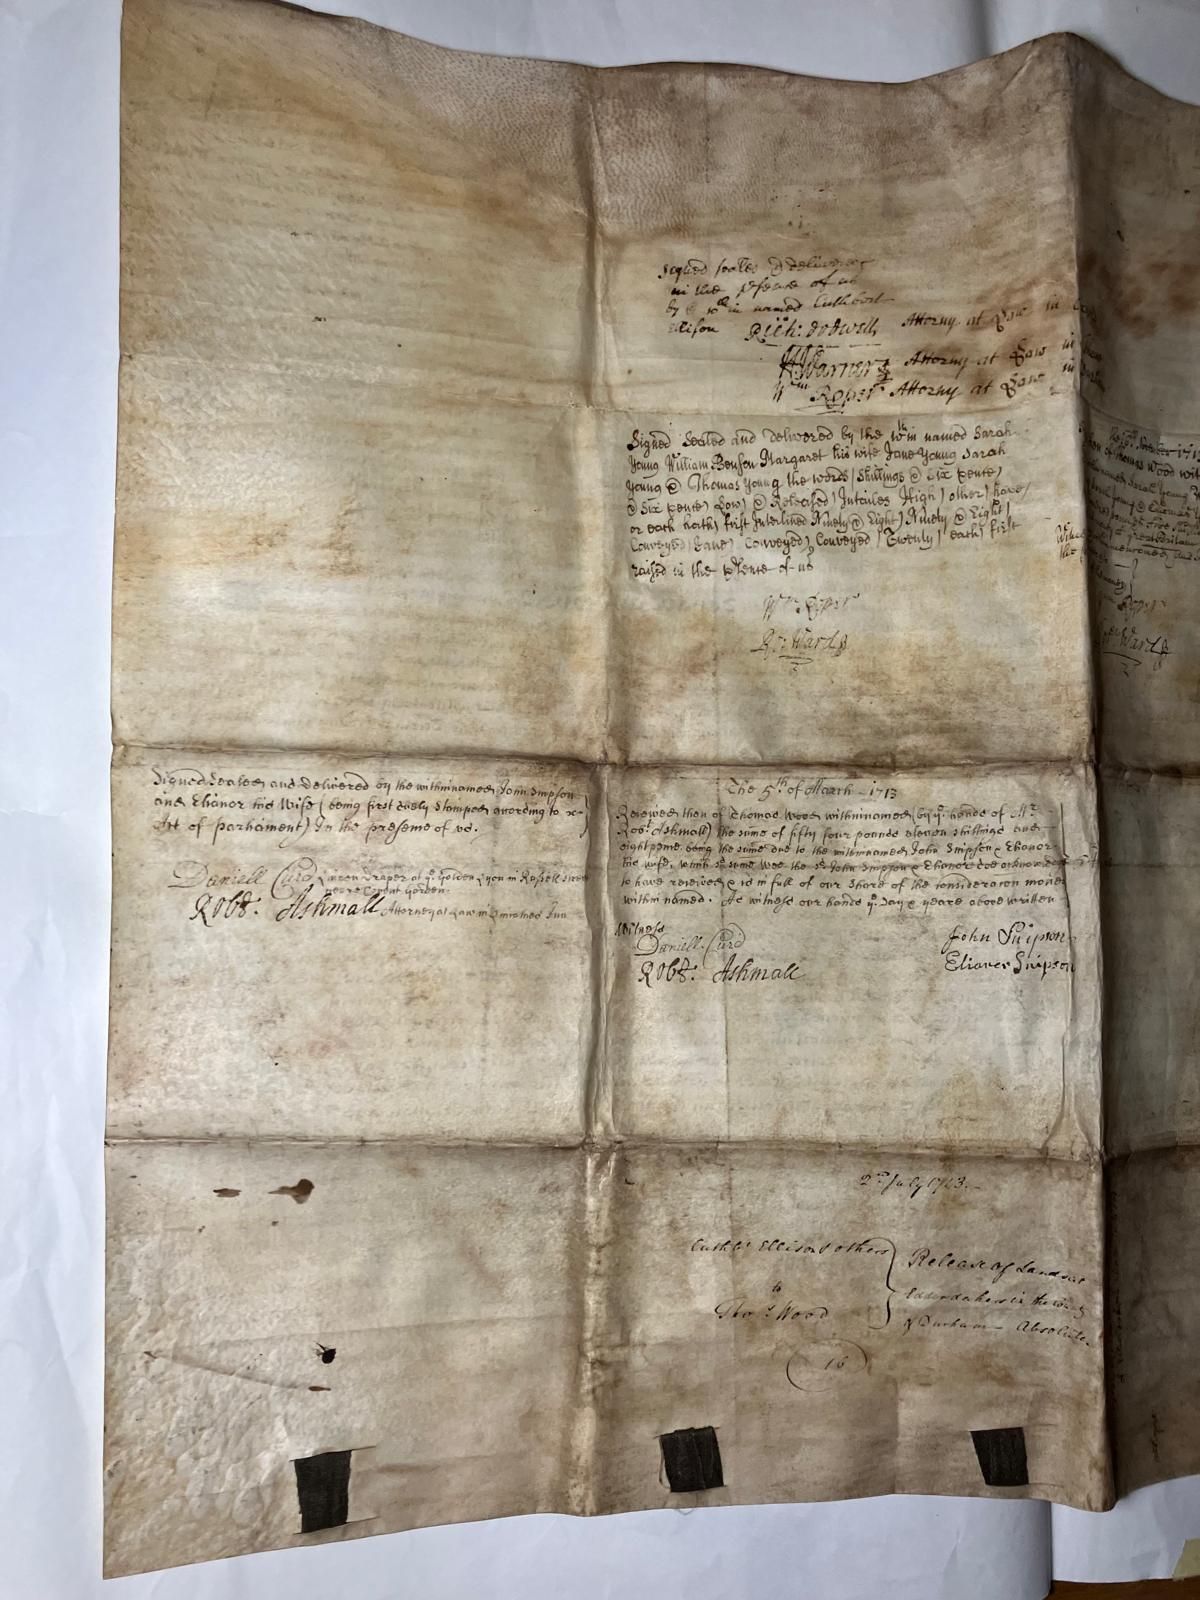 Signed sealed & delivered
in the p'sence of us
by the wthin named Cuthbert
Ellison
Rich: Dodwell Attorny at Law in
H Warner Attorny at Law in
Wm Roper Attorny at Law in
Signed Sealed and delivered by the wthin named Sarah
Young William Benson Margaret his wife Jane Young Sarah
Young & Thomas Young the words / Shillings & Six pence /
& Six pence / Low / & Released / High / other / have /
or each hath / first Interlined Ninety & Eight / Ninety & Eight /
Conveyed / Conveyed / Conveyed / Twenty / each / first
raised in the p'sence of us
Wm Roper
Ro: Ward
Thomas Wood
Wm Roper
Ward
Signed Sealed and delivered by the withinnamed John Simpson
and Elianor his Wife (being first duely Stamped according to
Act of parliament) In the presence of us.
Daniell Curd Linnen Draper at ye Golden Lyon in Russell Street
neere Covent Garden.
Robt. Ashmall Attorney at Law in Inn
The 5th of March - 1713
Received then of Thomas Wood withinnamed (by ye hands of Mr
Robt Ashmall) the sume of fifty four pounds eleven shillings and
eight pence being the sume due to the withinnamed John Simpson & Elianor
his wife, which sd sume wee the sd John Simpson & Elianor doe acknowledge
to have received & is in full of our share of the consideracon money
within named. As witness our hands ye day & yeare above written
Witness
Daniell Curd
Robt. Ashmall
John Simpson
Elianer Simpson
2nd July 1713.
Cuthbt Ellison & others
to
Thos Wood
Release of Lands at
Edderdakers in the County
of Durham - Absolute.
16